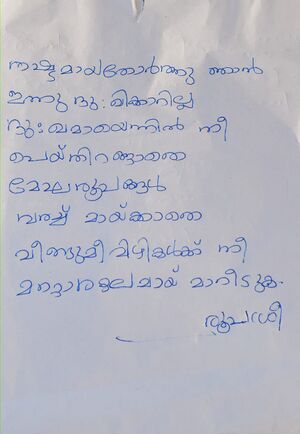 നഷ്ടമായതോർത്തു ഞാൻ
ഇന്നു ദു:ഖിക്കാറില്ല
ദു:ഖമായെന്നിൽ നീ
പെയ്തിറങ്ങാതെ
മേഘരൂപങ്ങൾ
വരച്ച് മായ്ക്കാതെ
വീങ്ങുമീവിഴികൾക്ക് നീ
മറ്റാരുമലമായ് മാറീടുക